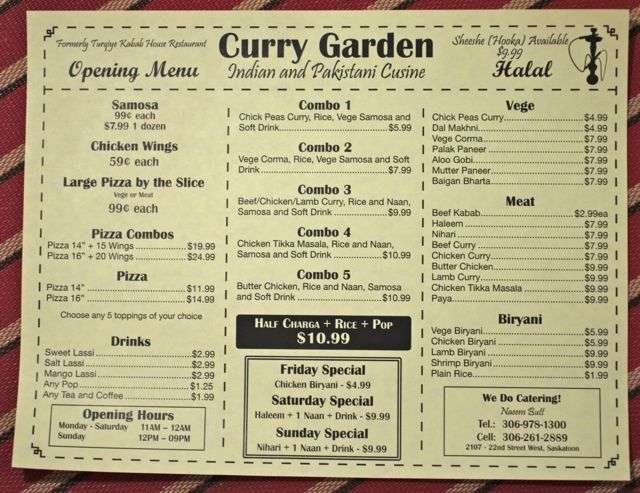 Formerly Turqiye Kabab House Restaurant
Opening Menu
Curry Garden
Indian and Pakistani Cusine
Sheeshe (Hooka) Available
$9.99
Halal
Samosa
99¢ each
$7.99 1 dozen
Chicken Wings
59¢ each
Large Pizza by the Slice
Vege or Meat
99¢ each
Pizza Combos
Pizza 14" + 15 Wings $19.99
Pizza 16" + 20 Wings $24.99
Pizza
Pizza 14" $11.99
Pizza 16" $14.99
Choose any 5 toppings of your choice
Drinks
Sweet Lassi $2.99
Salt Lassi $2.99
Mango Lassi $2.99
Any Pop $1.25
Any Tea and Coffee $1.99
Opening Hours
Monday - Saturday 11AM – 12AM
Sunday 12PM – 09PM
Combo 1
Chick Peas Curry, Rice, Vege Samosa and
Soft Drink $5.99
Combo 2
Vege Corma, Rice, Vege Samosa and Soft
Drink $7.99
Combo 3
Beef/Chicken/Lamb Curry, Rice and Naan,
Samosa and Soft Drink $9.99
Combo 4
Chicken Tikka Masala, Rice and Naan,
Samosa and Soft Drink $10.99
Combo 5
Butter Chicken, Rice and Naan, Samosa
and Soft Drink $10.99
Half Charga + Rice + Pop
$10.99
Friday Special
Chicken Biryani - $4.99
Saturday Special
Haleem + 1 Naan + Drink - $9.99
Sunday Special
Nihari + 1 Naan + Drink - $9.99
Vege
Chick Peas Curry $4.99
Dal Makhni $4.99
Vege Corma $7.99
Palak Paneer $7.99
Aloo Gobi $7.99
Mutter Paneer $7.99
Baigan Bharta $7.99
Meat
Beef Kabab $2.99ea
Haleem $7.99
Nihari $7.99
Beef Curry $7.99
Chicken Curry $7.99
Butter Chicken $9.99
Lamb Curry $9.99
Chicken Tikka Masala $9.99
Paya $9.99
Biryani
Vege Biryani $5.99
Chicken Biryani $5.99
Lamb Biryani $9.99
Shrimp Biryani $9.99
Plain Rice $1.99
We Do Catering!
Naeem Bull
Tel.: 306-978-1300
Cell: 306-261-2889
2107 - 22nd Street West, Saskatoon